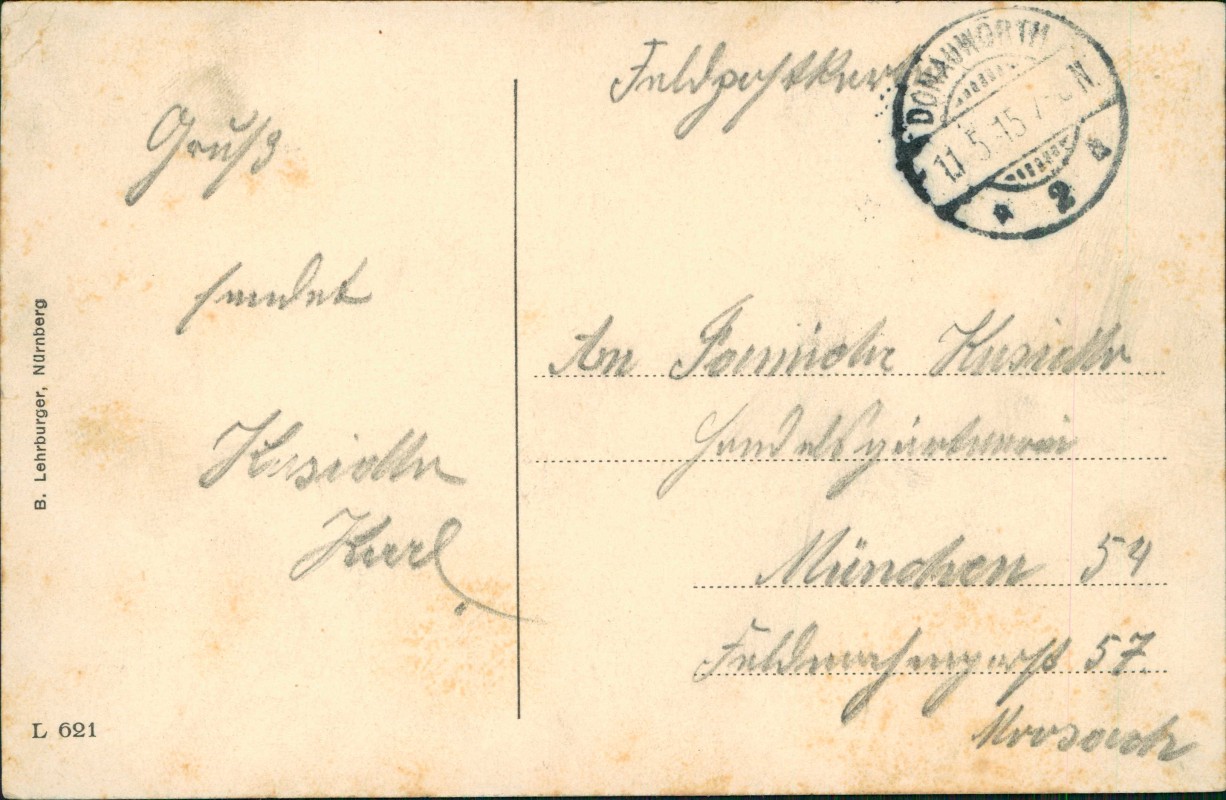 Feldpostkarte
DONAUWÖRTH
11.5.15 7-8 N
* 2 a
Gruß
sendet
Karl
An Familie
Handelsgärtnerei
München 54
57
Moosach
B. Lehrburger, Nürnberg
L 621